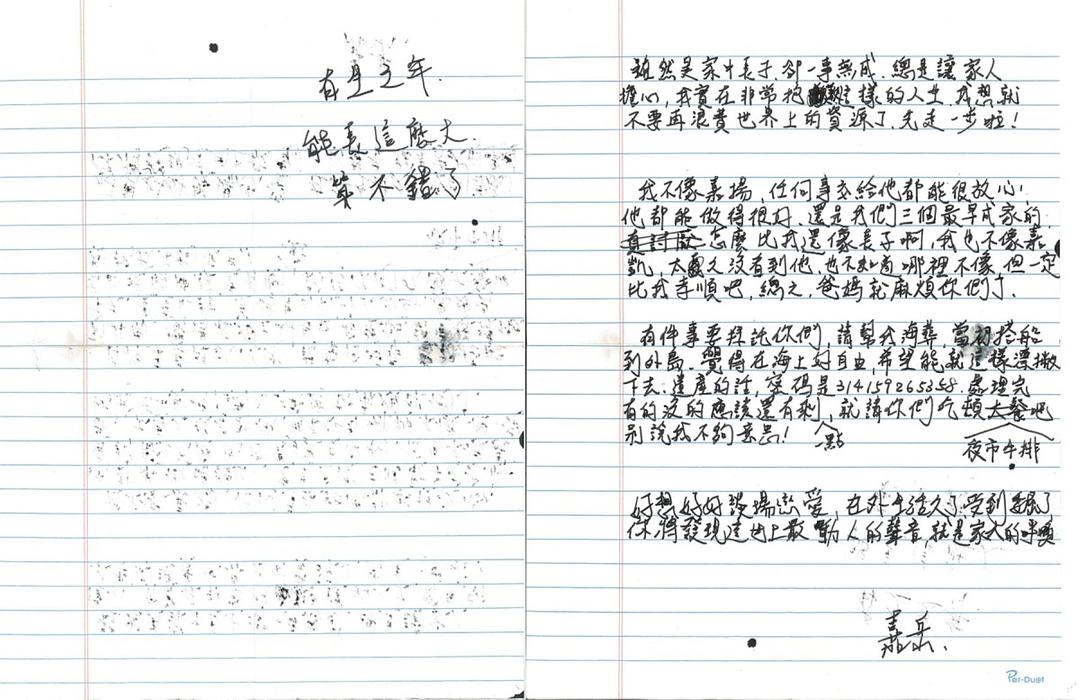 有生之年.
能長這麼大.
算不錯了
雖然是家中長子, 卻一事無成, 總是讓家人
擔心, 我實在非常抱 這樣的人生, 我想就
不要再浪費世界上的資源了, 先走一步啦!
我不像嘉揚, 任何事交給他都能很放心!
他都能做得很好, 還是我們三個最早成家的,
真討厭 怎麼比我還像長子啊, 我也不像嘉
凱, 太久沒看到他, 也不知道哪裡不像, 但一定
比我孝順吧, 總之, 爸媽就麻煩你們了.
有件事要拜託你們, 請幫我海葬, 當初搭船
到外島, 覺得在海上好自由, 希望能就這樣漂撇
下去. 遺產的話, 密碼是314159265358. 處理完
有的沒的應該還有剩, 就請你們吃頓大餐吧
別說我不夠意思!
一點
夜市牛排
好想好好談場戀愛, 在外生活久了, 受到 了
你將發現這世上最動人的聲音, 就是家人的呼喚
嘉岳.
Per-Duet